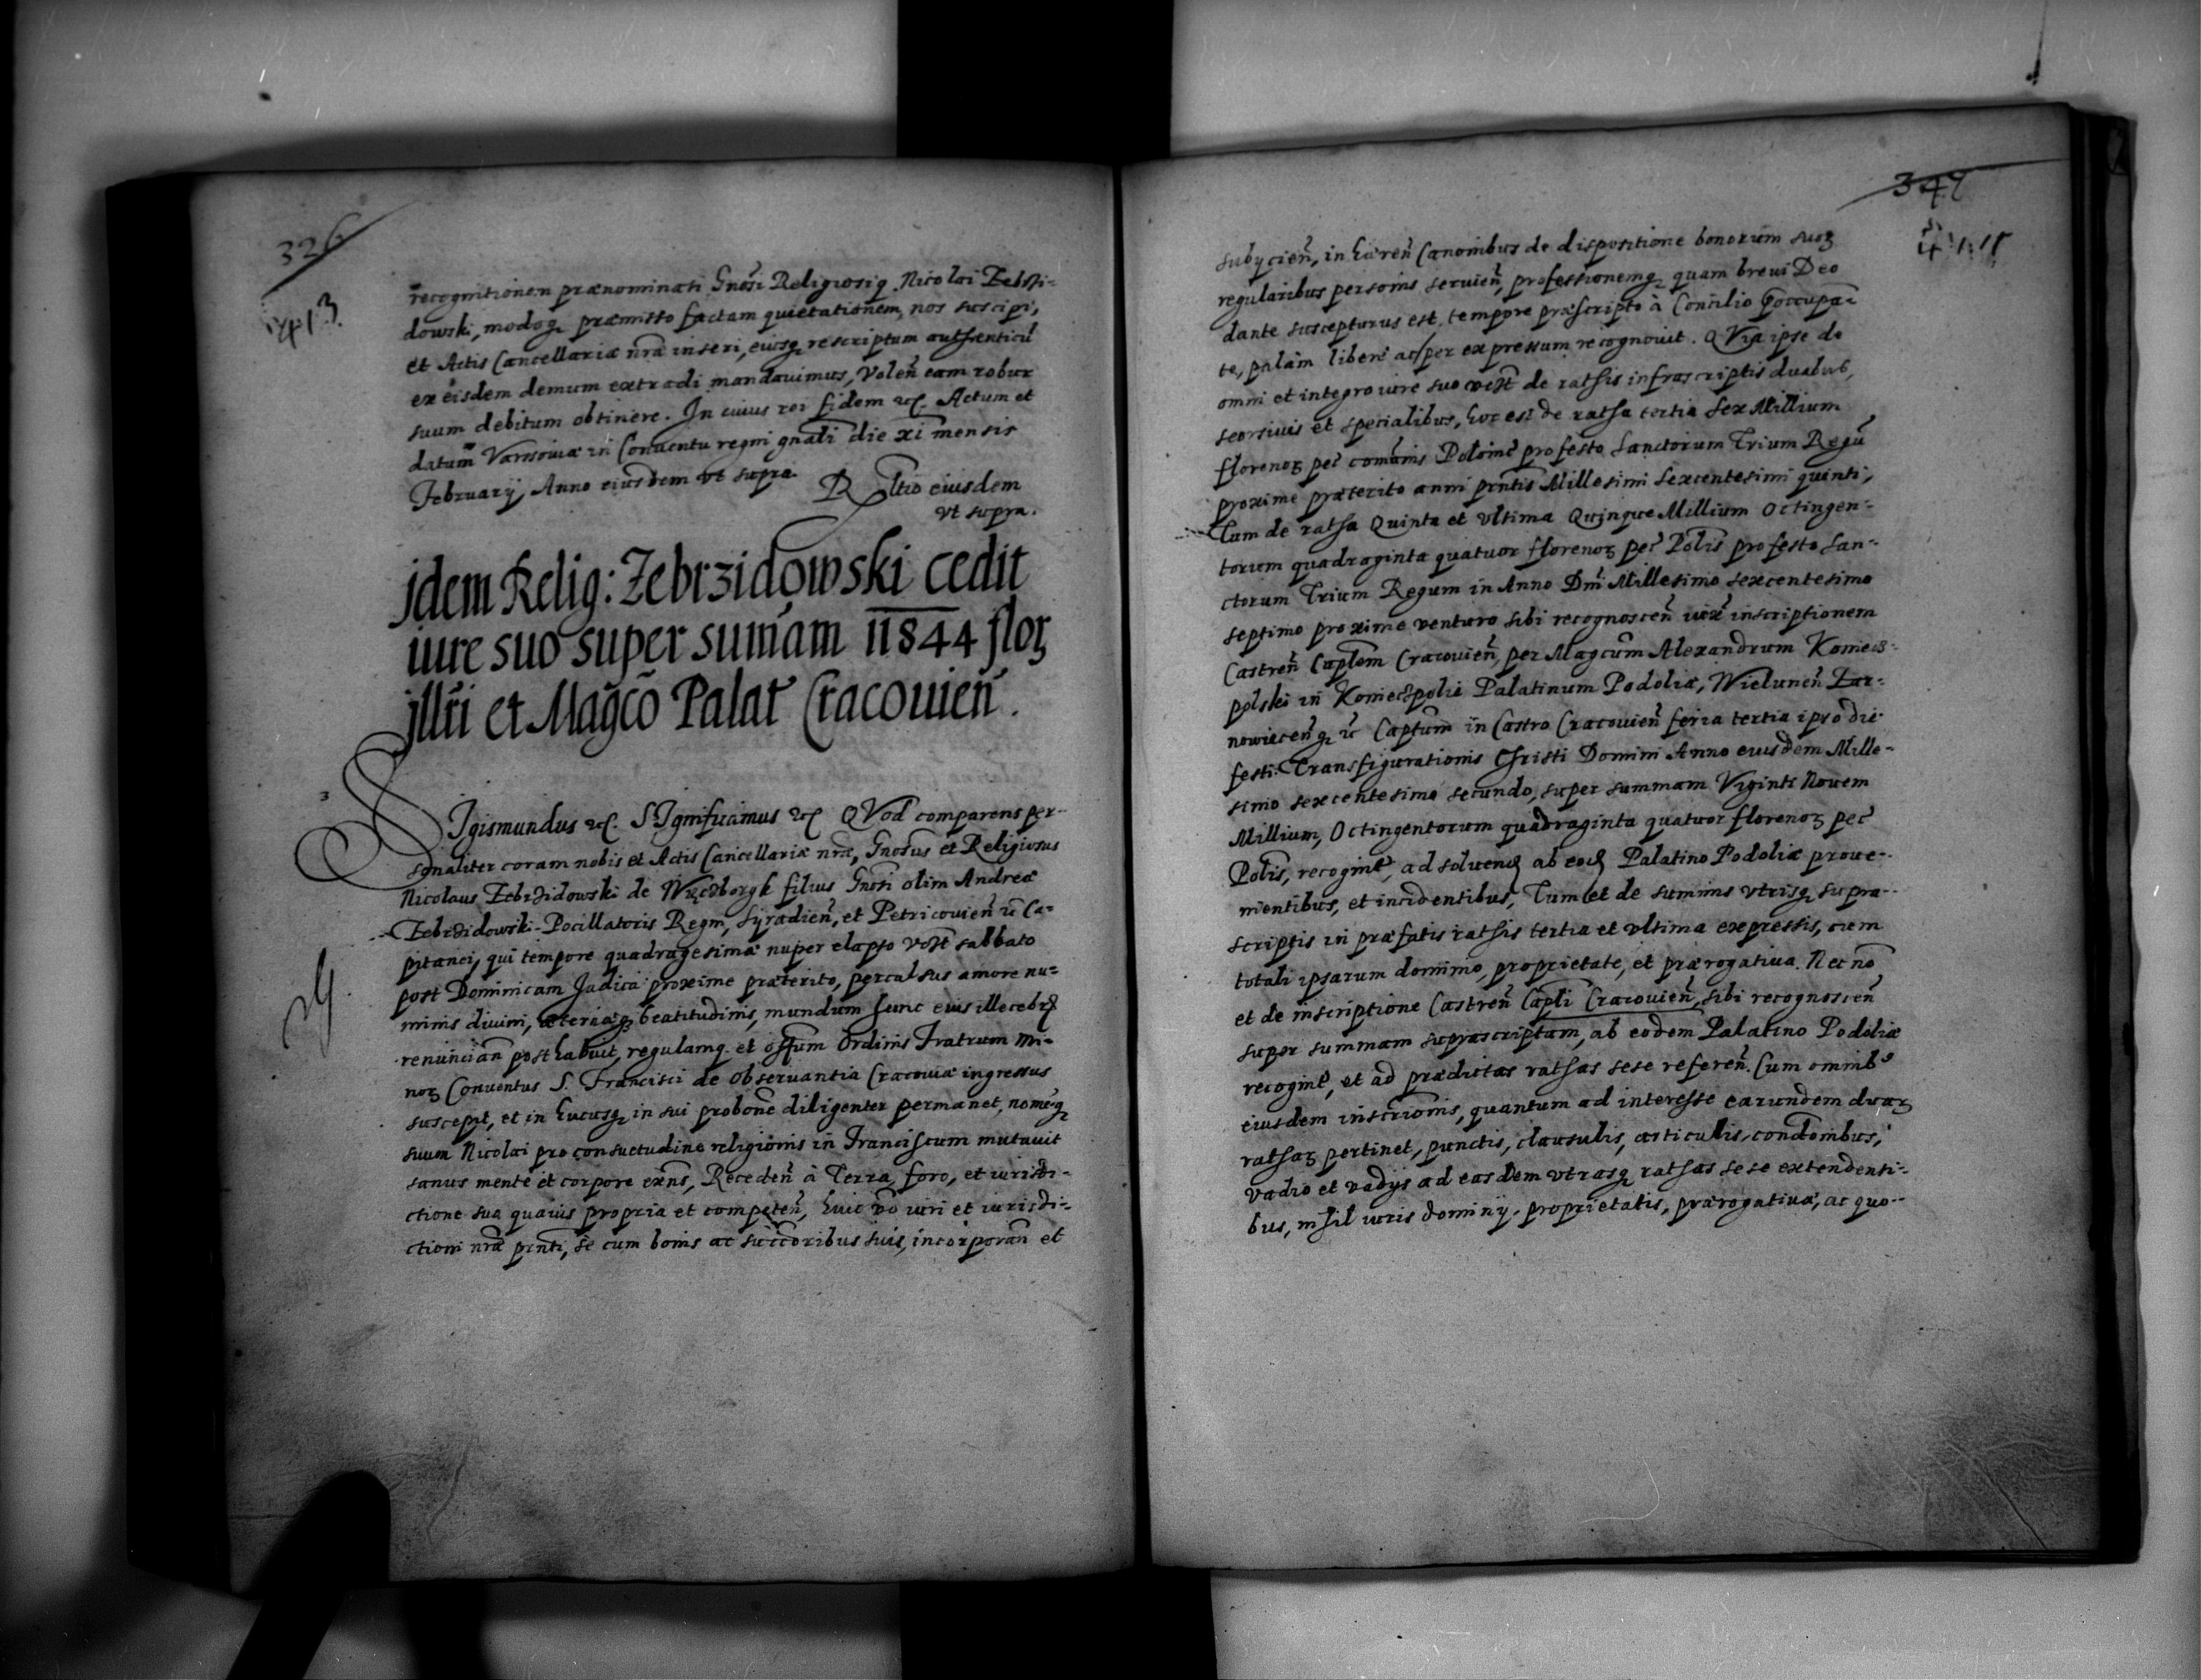 326
recognitionem prænominati Gnosi Religiosiq Nicolai Zebrzi-
dowski, modoq præmisso factam quietationem, nos suscipi,
et Actis Cancellariæ nræ inseri, eiusq rescriptum authenticũ
ex eisdem demum extradi mandauimus, Volen̄ eam robur
suum debitum obtinere. In cuius rei fidem etc. Actum et
datum Varsouiæ in Conuentu regni gnali die xi mensis
February, Anno eiusdem vt supra.
Rltio eiusdem
vt supra.
jdem Relig: Zebrzidowski cedit
iure suo super sum̃am 11844 floꝝ
jllri et Mag̃co Palat Cracouien̄.
SIgismundus etc. SIgnificamus etc QVod comparens per-
sonaliter coram nobis et Actis Cancellariæ nræ, Gnosus et Religiosus
Nicolaus Zebrzidowski de Więczborgk filius Gnosi olim Andreæ
Zebrzidowski Pocillatoris Regni, Syradien̄, et Petricouien̄ etc Ca-
pitanei, qui tempore quadragesimæ nuper elapso vozt sabbato
post Dominicam Judica proxime præterito, perculsus amore nu-
minis diuini, æternæq beatitudinis, mundum hunc eius illecebris
renuncian̄ posthabuit, regulamq et ossum Ordinis Fratrum Mi-
noꝝ Conuentus S. Francisci de Obseruantia Cracouiæ ingressus
suscepit, et in hucusq in sui probone diligenter permanet, nomeq
suum Nicolai pro consuetudine religionis in Franciscum mutauit
sanus mente et corpore exns, Receden̄ à Terra, foro, et iurisdi-
ctione sua quauis propria et competen̄, huic vo iuri et iurisdi-
ctioni nræ prnti, se cum bonis ac succoribus suis, incorporan̄ et
subycien̄, in hæren̄ Canonibus de dispositione bonorum suoꝝ
regularibus personis seruien̄, professionemq quam breui Deo
dante suscepturus est, tempore præscripto à Concilio præoccupa-
te, palam libere ac per expressum recognouit. QVia ipse de
omni et integro iure suo vozt de rathis infrascriptis duabus,
seorsiuis et specialibus, hoc est de ratha tertia Sex Millium
florenoꝝ pec̃ com̃unis Polonic̃ pro festo Sanctorum Trium Regũ
proxime præterito anni prntis Millesimi Sexcentesimi quinti,
Tum de ratha Quinta et vltima Quinque Millium Octingen-
torum quadraginta quatuor florenoꝝ pec̃ Polis pro festo San-
ctorum Trium Regum in Anno Dni Millesimo sexcentesimo
septimo proxime venturo sibi recognoscen̄ iuxt inscriptionem
Castren̄ Caplem Cracouien̄, per Magcum Alexandrum Koniecz-
polski in Konieczpolie Palatinum Podoliæ, Wielunen̄ Zar-
nowiecen̄q etc Captum in Castro Cracouien̄ feria tertia ipso die
festi Transfigurationis Christi Domini Anno eiusdem Mille-
simo sexcentesimo secundo, super summam Viginti Nouem
Millium, Octingentorum quadraginta quatuor florenoꝝ pec̃
Polis, recognit, ad soluend ab eod Palatino Podoliæ proue-
nientibus, et incidentibus, Tum et de summis vtrisq supra-
scriptis in præfatis rathis tertia et vltima expressis, cum
totali ipsarum dominio, proprietate, et prærogatiua. Nec nõ
et de inscriptione Castren̄ Capli Cracouien̄, sibi recognoscen̄
super summam suprascriptam, ab eodem Palatino Podoliæ
recognit, et ad prædictas rathas sese referen̄. Cum omnibꝰ
eiusdem inscrionis, quantum ad interesse earundem duaꝝ
rathaꝝ pertinet, punctis, clausulis, articulis, condonibus,
vadio et vadys ad easdem vtrasq rathas sese extendenti-
bus, nihil iuris dominy, proprietatis, prærogatiuæ, ac quo-